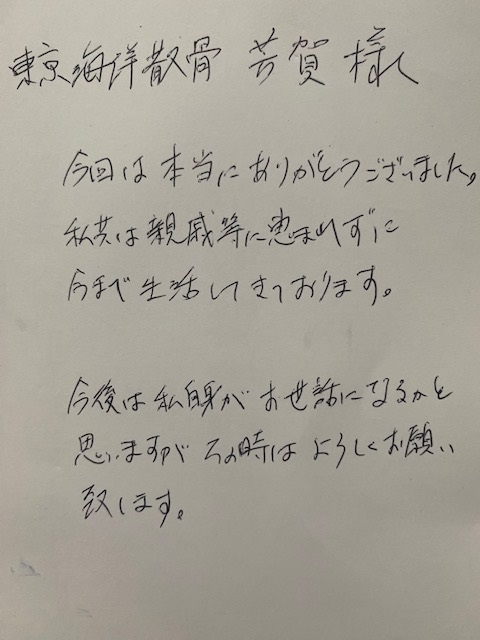 東京海洋散骨 芳賀 様
今回は本当にありがとうございました。
私共は親戚等に恵まれずに
今まで生活してきております。
今後は私自身がお世話になるかと
思いますが その時は よろしくお願い
致します。